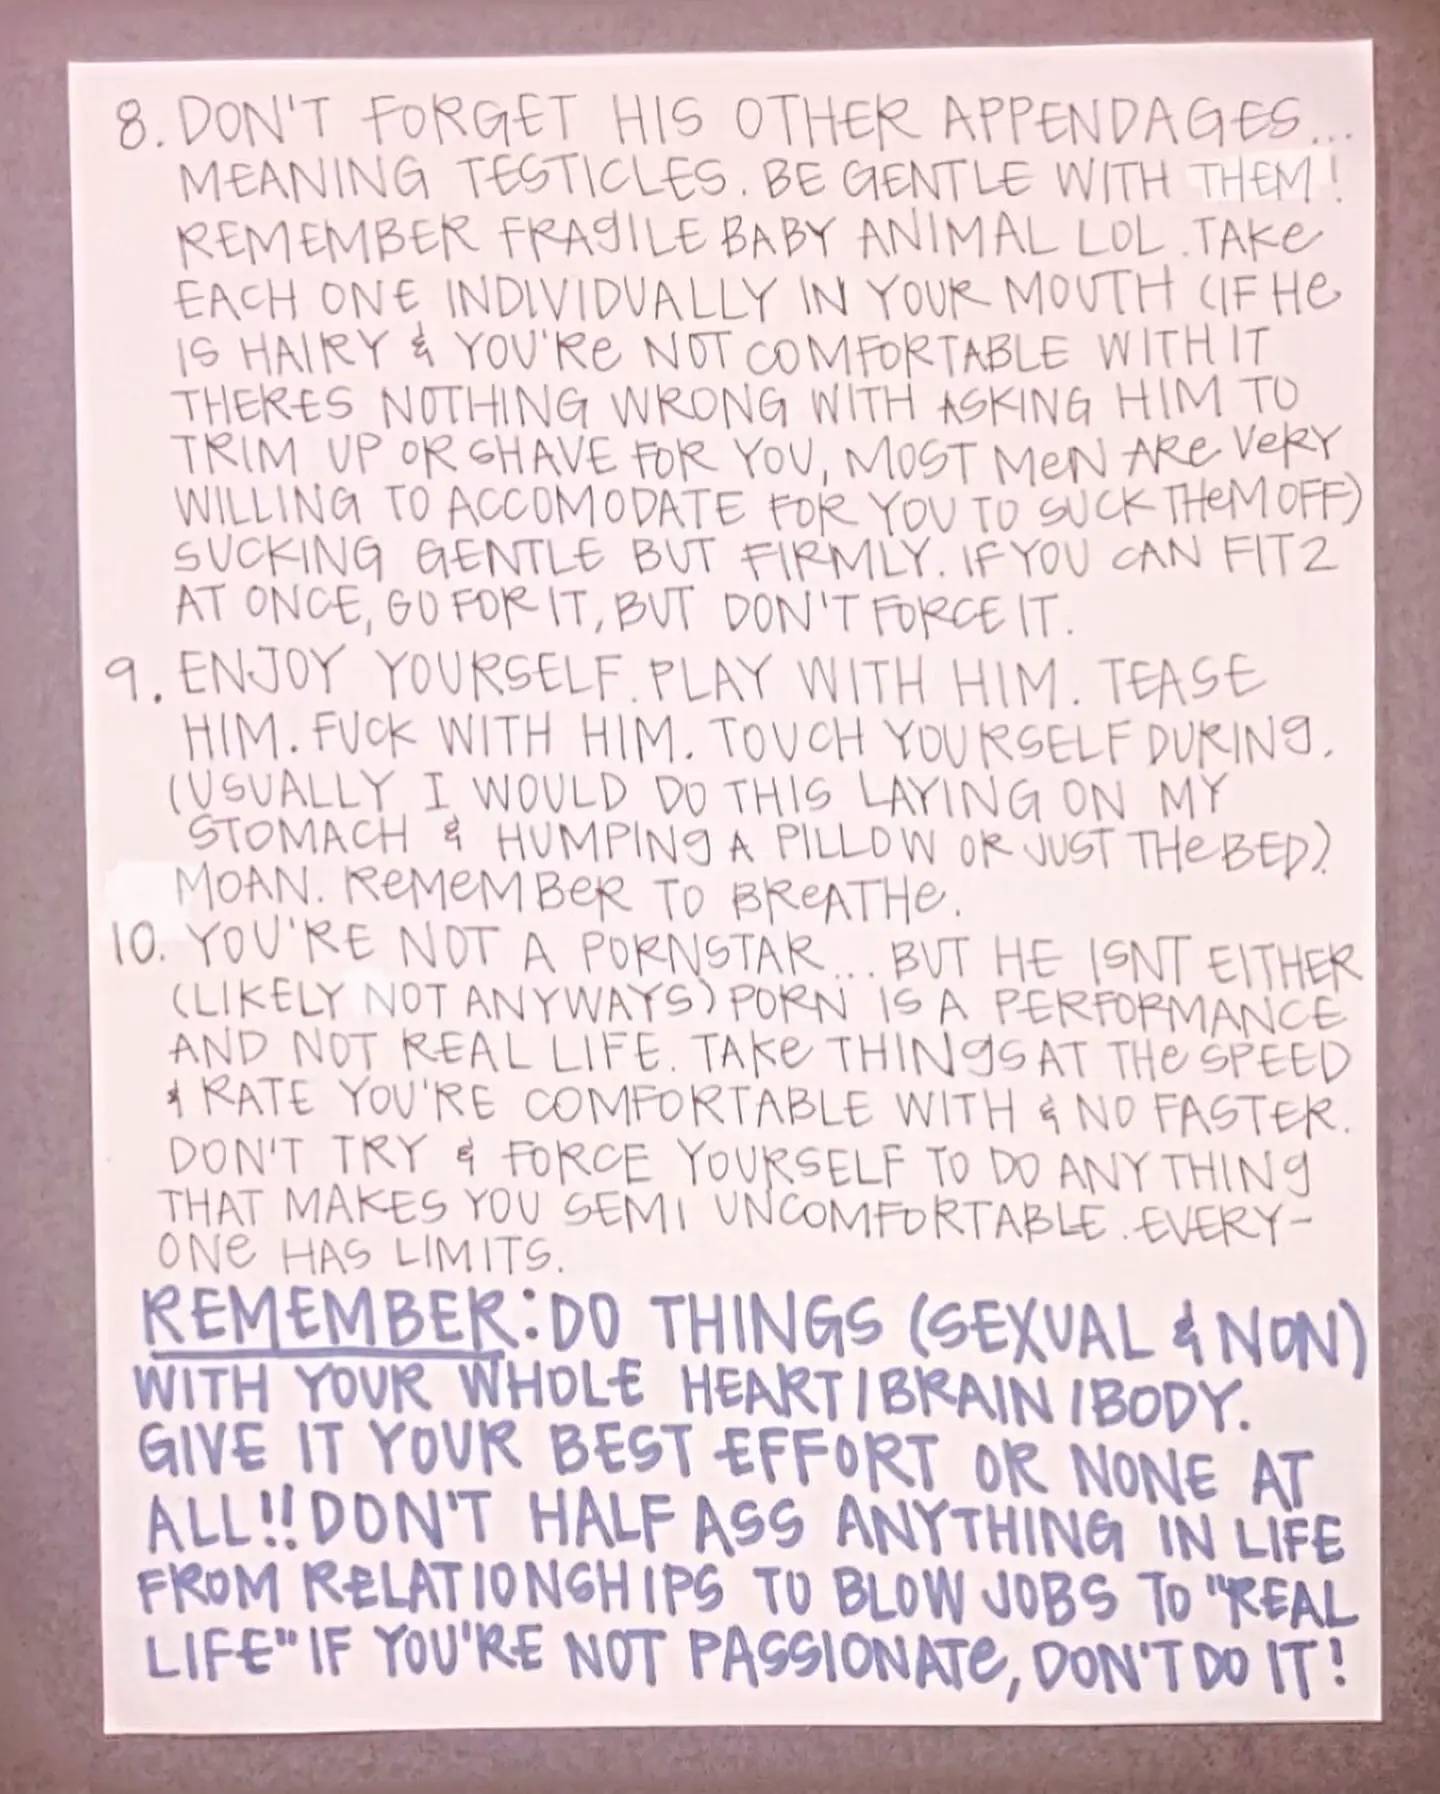 8. DON'T FORGET HIS OTHER APPENDAGES...
MEANING TESTICLES. BE GENTLE WITH THEM!
REMEMBER FRAGILE BABY ANIMAL LOL. TAKE
EACH ONE INDIVIDUALLY IN YOUR MOUTH (IF HE
IS HAIRY & YOU'RE NOT COMFORTABLE WITH IT
THERES NOTHING WRONG WITH ASKING HIM TO
TRIM UP OR SHAVE FOR YOU, MOST MEN ARE VERY
WILLING TO ACCOMODATE FOR YOU TO SUCK THEM OFF)
SUCKING GENTLE BUT FIRMLY. IF YOU CAN FIT 2
AT ONCE, GO FOR IT, BUT DON'T FORCE IT.
9. ENJOY YOURSELF. PLAY WITH HIM. TEASE
HIM. FUCK WITH HIM. TOUCH YOURSELF DURING.
(USUALLY I WOULD DO THIS LAYING ON MY
STOMACH & HUMPING A PILLOW OR JUST THE BED)
MOAN. REMEMBER TO BREATHE.
10. YOU'RE NOT A PORNSTAR... BUT HE ISNT EITHER
(LIKELY NOT ANYWAYS) PORN IS A PERFORMANCE
AND NOT REAL LIFE. TAKE THINGS AT THE SPEED
& RATE YOU'RE COMFORTABLE WITH & NO FASTER.
DON'T TRY & FORCE YOURSELF TO DO ANYTHING
THAT MAKES YOU SEMI UNCOMFORTABLE. EVERY-
ONE HAS LIMITS.
REMEMBER: DO THINGS (SEXUAL & NON)
WITH YOUR WHOLE HEART/BRAIN/BODY.
GIVE IT YOUR BEST EFFORT OR NONE AT
ALL!! DON'T HALF ASS ANYTHING IN LIFE
FROM RELATIONSHIPS TO BLOW JOBS TO "REAL
LIFE" IF YOU'RE NOT PASSIONATE, DON'T DO IT!